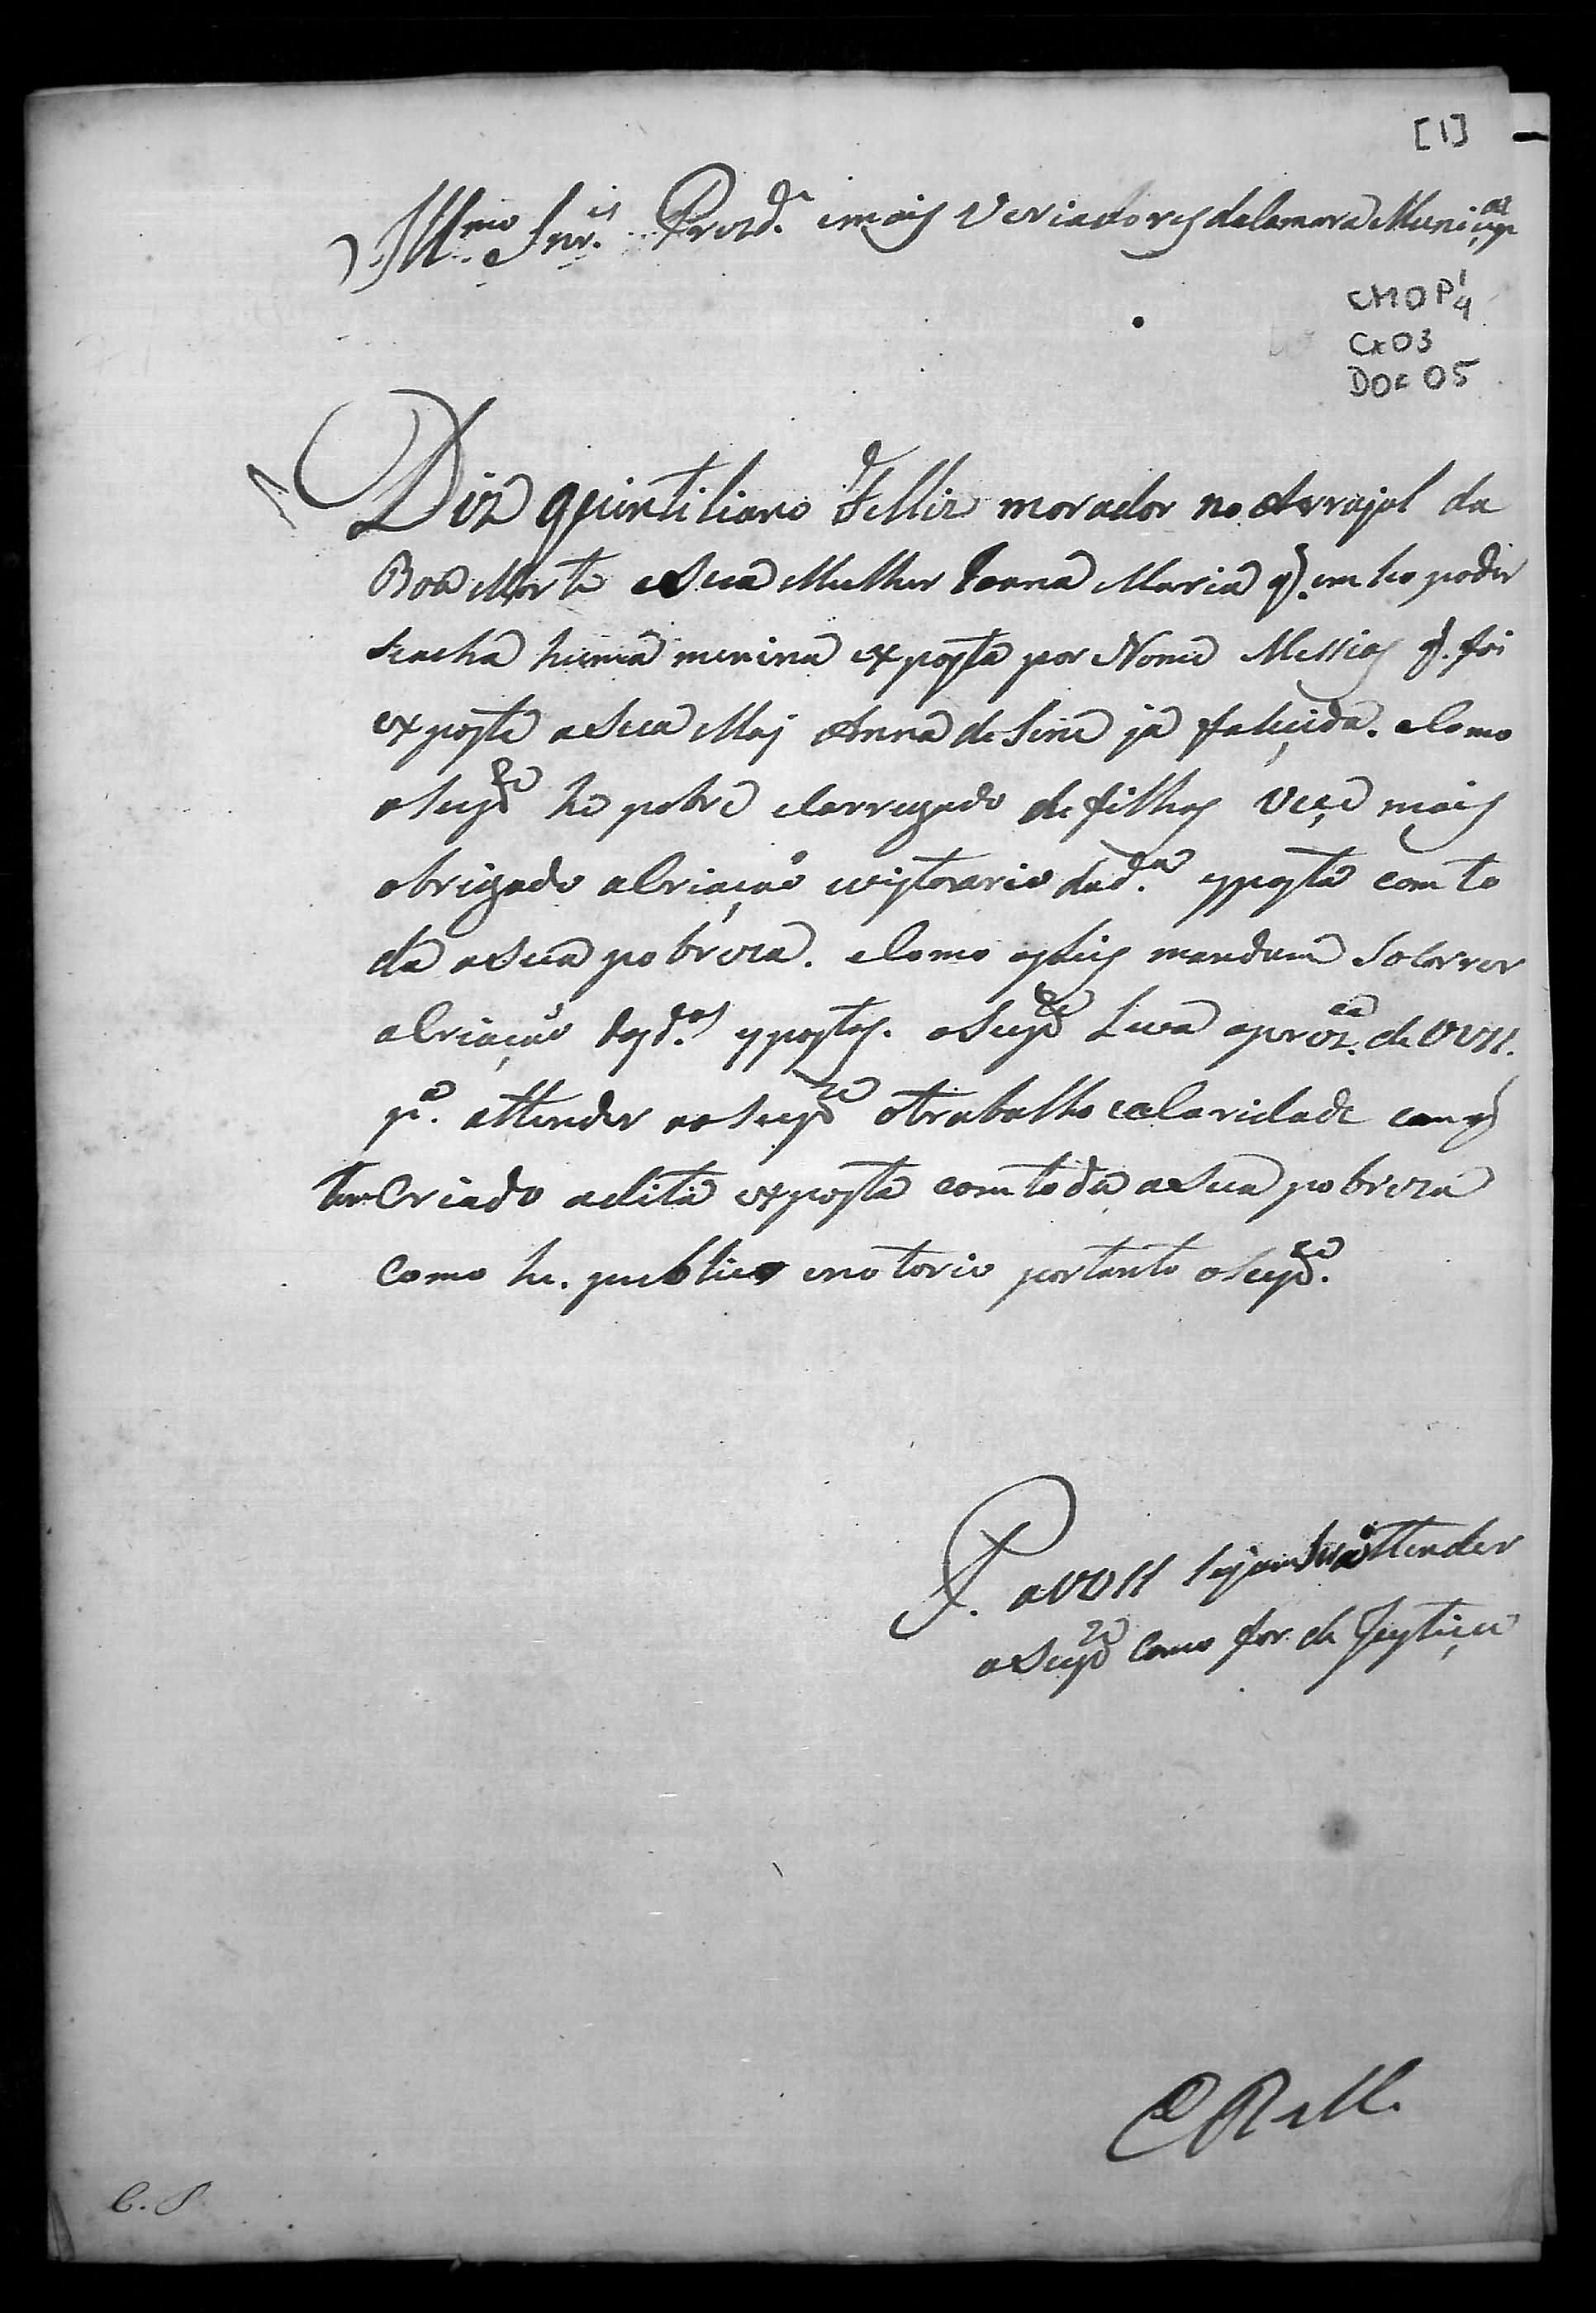 [1]
Illmos Snres Prezde. e mais Veriadores da Camara Municipal
CMOP 1/4
Cx 03
Doc 05
Diz quintiliano Felliz morador no Arrajal da
Boa Morte e Sua Mulher Joana Maria q. em seo poder
seacha huma menina exposta por Nome Messias q. foi
exposta a Sua Maj Anna de Sena já falecida. e Como
o Supe he pobre e Carregado de filhos vece mais
obrigado a Criação da da. esposta com to
da a Sua pobreza. e Como as Leis mandam Socorrer
a Criação dos ds espostos. o Supe Leva a prezca. de VVSS.
pa. attender ao Supe o trabalho e a Caridade com q
tem Criado a dita exposta com toda a Sua pobreza
Como he. publico e notorio portanto o Supe.
P. a VVSS Sejam Servidos attender
o Supe Como for de Justiça
E R Mce.
C. P